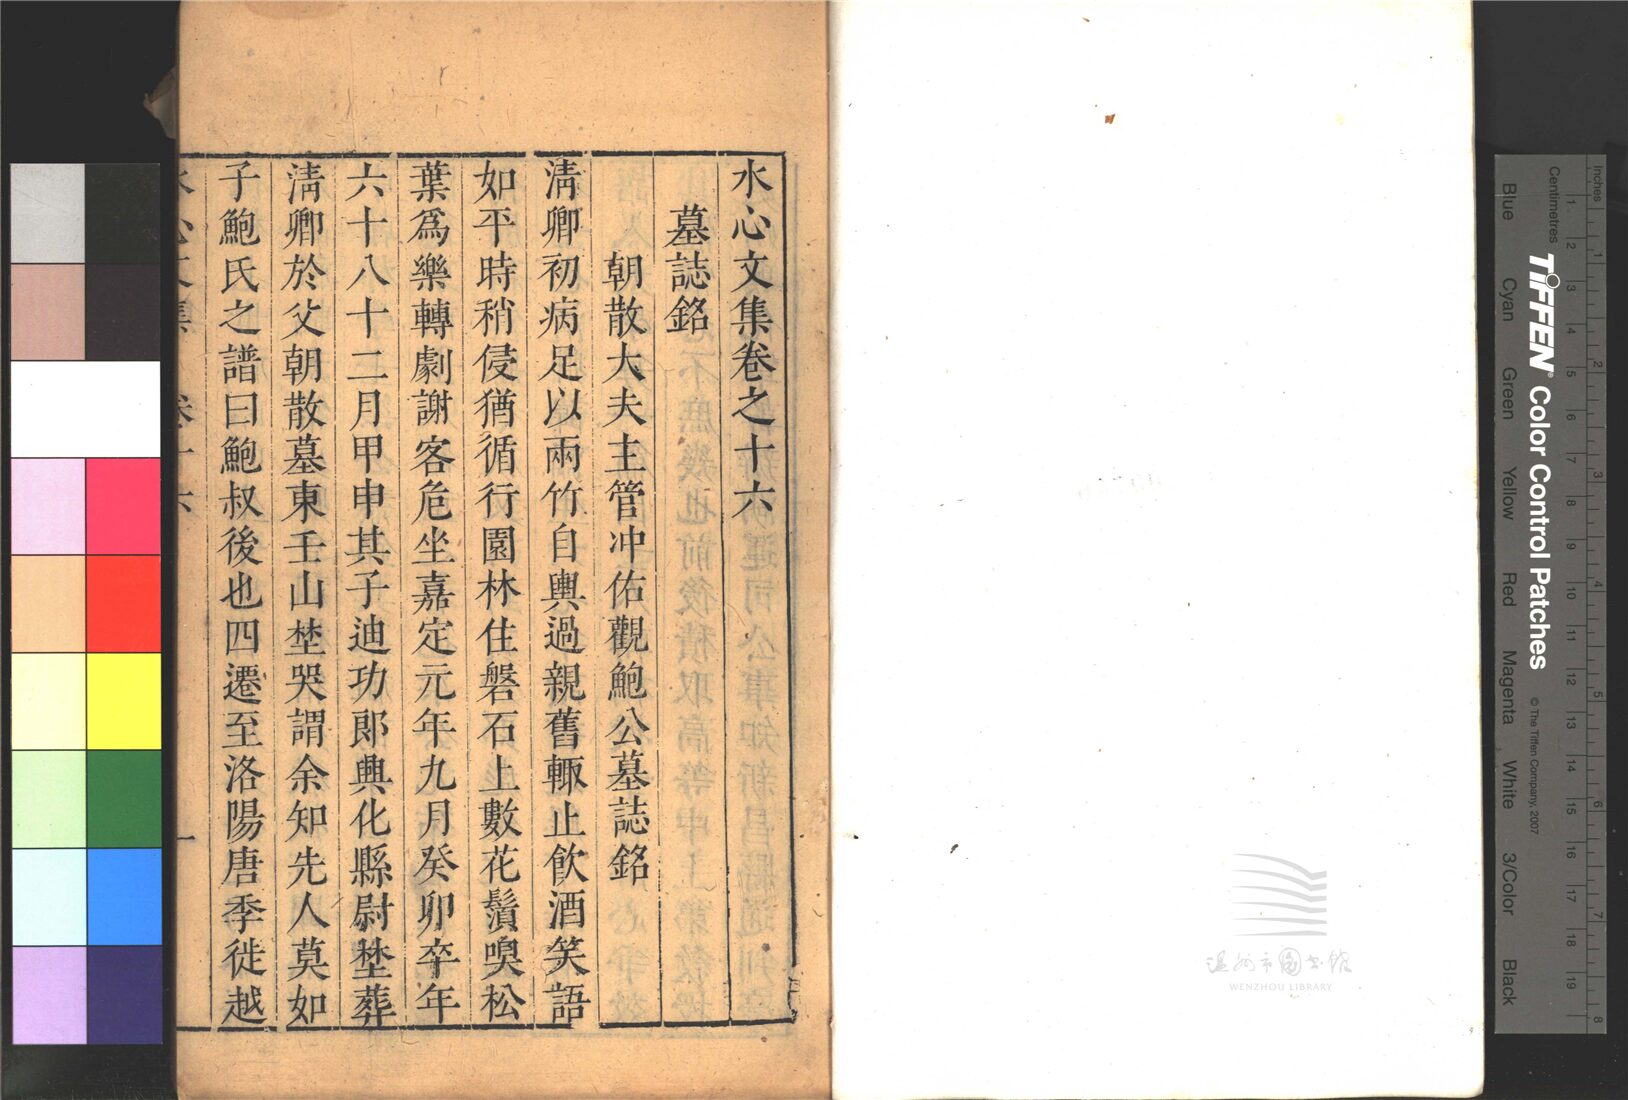 水心文集卷之十六
墓誌銘
朝散大夫主管冲佑觀鮑公墓誌銘
淸卿初病足以兩竹自輿過親舊輙止飮酒笑語
如平時稍侵猶循行園林住磐石上數花鬚嗅松
葉爲樂轉劇謝客危坐嘉定元年九月癸卯卒年
六十八十二月甲申其子迪功郞興化縣尉埜葬
淸卿於父朝散墓東壬山埜哭謂余知先人莫如
子鮑氏之譜曰鮑叔後也四遷至洛陽唐季徙越
水心文集 卷十六 一
溫州市圖書館
WENZHOU LIBRARY
Inches
1 2 3 4 5 6 7 8
Centimetres
1 2 3 4 5 6 7 8 9 10 11 12 13 14 15 16 17 18 19
TIFFEN® Color Control Patches © The Tiffen Company, 2007
Blue Cyan Green Yellow Red Magenta White 3/Color Black